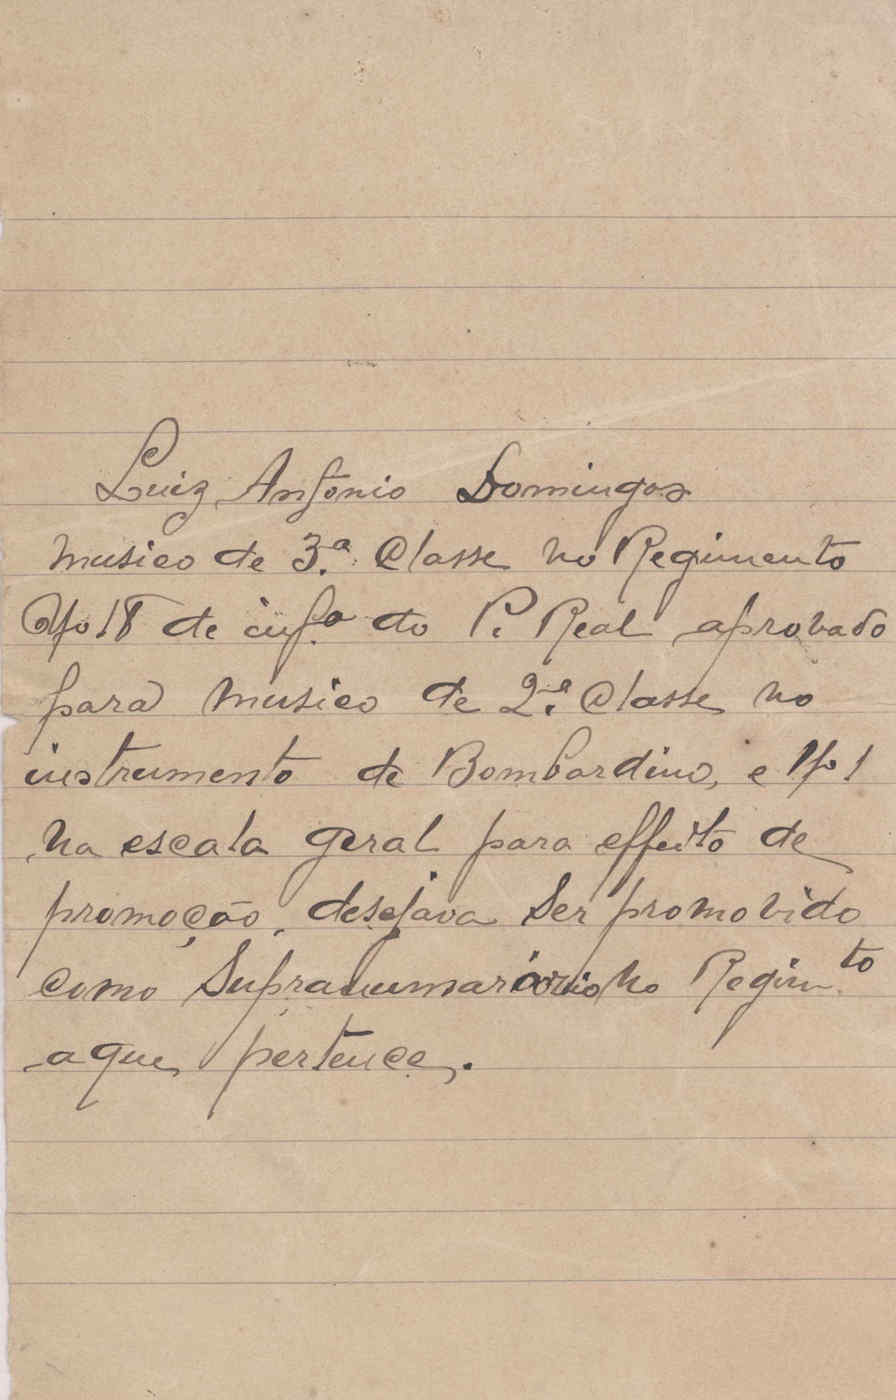 Luiz Antonio Domingos
musico de 3.ª Classe no Regimento
Nº 18 de inf.ª do P. Real aprovado
para musico de 2.ª Classe no
instrumento de Bombardino, e Nº 1
na escala geral para effeito de
promoção, desejava ser promovido
como Supranumarario no Regim.to
aque pertence.